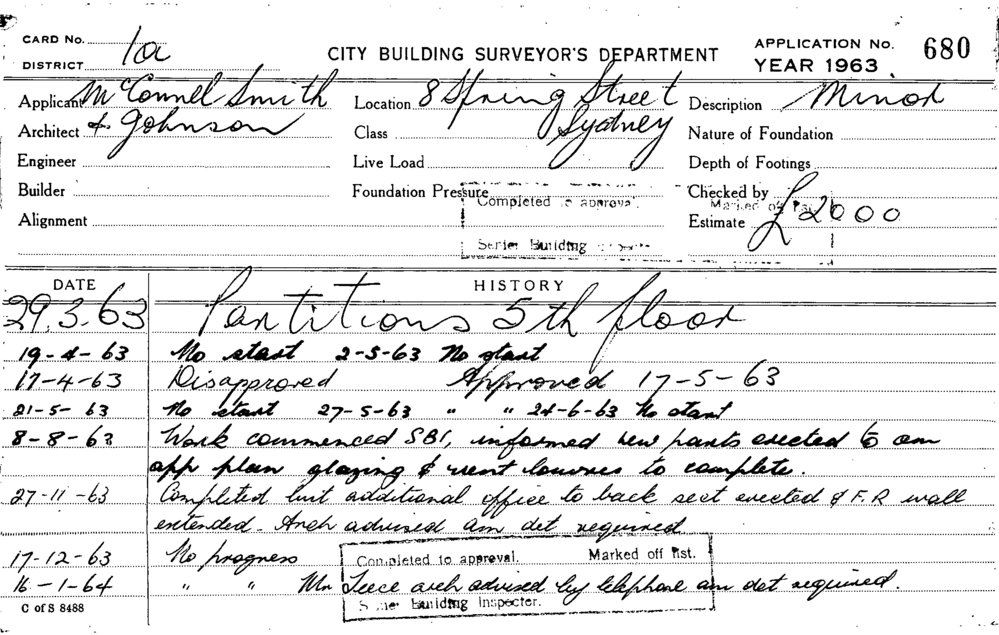 CARD No.
DISTRICT 1a
CITY BUILDING SURVEYOR'S DEPARTMENT
APPLICATION No. 680
YEAR 1963
Applicant McConnel Smith
Location 8 Spring Street
Description Minor
Architect & Johnson
Class Sydney
Nature of Foundation
Engineer
Live Load
Depth of Footings
Builder
Foundation Pressure
Checked by
Completed to approval.
Marked off list.
Alignment
Estimate £2000
Senior Building
DATE HISTORY
29.3.63 Partitions 5th floor
19-4-63 No start 2-5-63 No start
17-4-63 Disapproved Approved 17-5-63
21-5-63 No start 27-5-63 " " 24-6-63 No start
8-8-63 Work commenced SBI, informed new parts erected to am
app plan glazing & vent louvres to complete.
27-11-63 Completed but additional office to back sect erected & F.R wall
extended. Arch advised am det required
17-12-63 No progress
Completed to approval. Marked off list.
16-1-64 " " Mr Leece arch advised by telephone am det required.
Senior Building Inspector.
C of S 8488